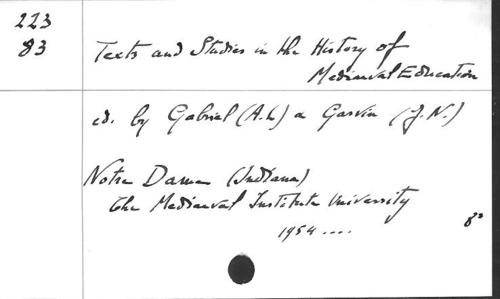 223
83
Texts and Studies in the History of
Mediaeval Education
ed. by Gabriel (A.L) a Garvin (J.N.)
Notre Dame (Indiana)
The Mediaeval Institute University
1954 ....
8°